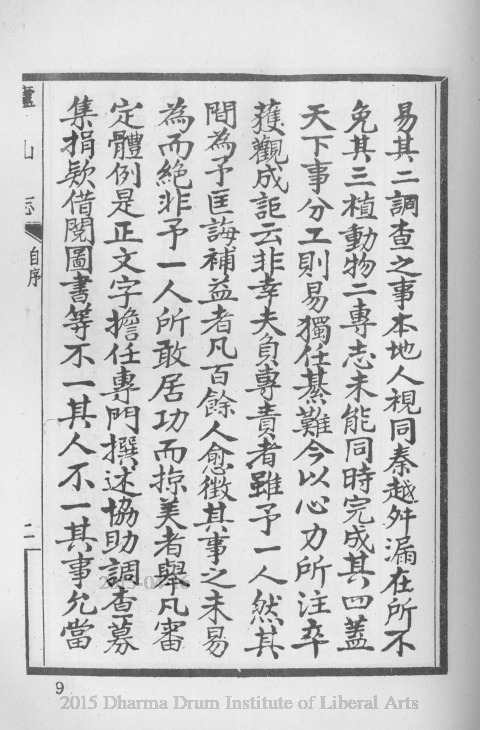 易其二調查之事本地人視同秦越舛漏在所不
免其三植動物二專志未能同時完成其四蓋
天下事分工則易獨任綦難今以心力所注卒
獲觀成詎云非幸夫負專責者雖予一人然其
間為予匡誨補益者凡百餘人愈徵其事之未易
為而絕非予一人所敢居功而掠美者舉凡審
定體例是正文字擔任專門撰述協助調查募
集捐欵借閱圖書等不一其人不一其事允當
廬山志
自序
二
9
2015 Dharma Drum Institute of Liberal Arts